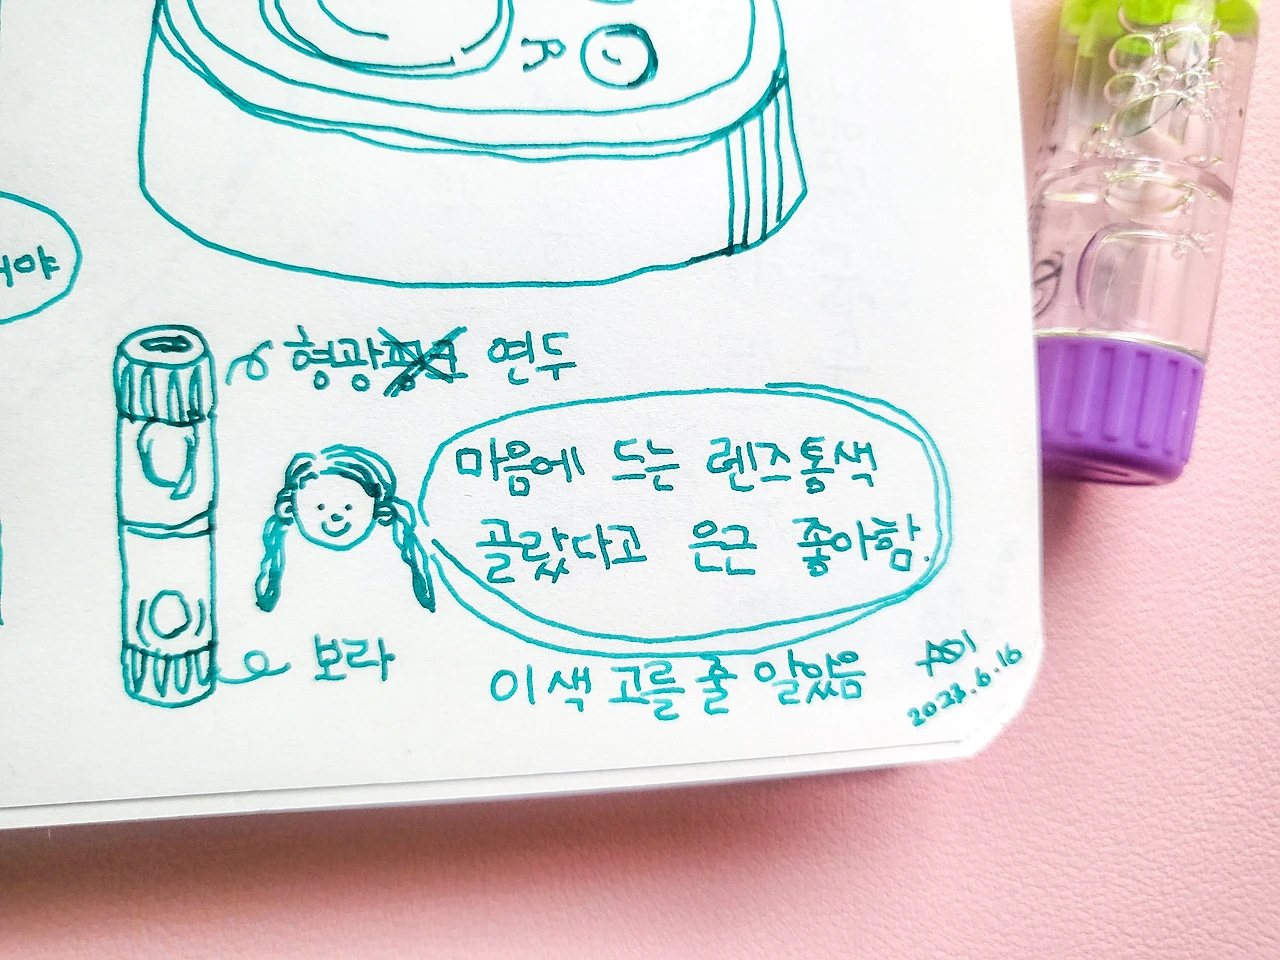 R
야
형광 연두
마음에 드는 렌즈통색
골랐다고 은근 좋아함.
보라
이색 고를 줄 알았음
2023.6.16